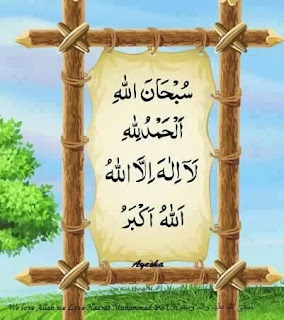 سُبْحَانَ اللهِ
اَلْحَمْدُ لِلهِ
لَآ اِلٰهَ اِلَّا اللهُ
اَللهُ اَكْبَرُ
Ayesha
We love Allah we Love Hazrat Muhammad P.B.U.H